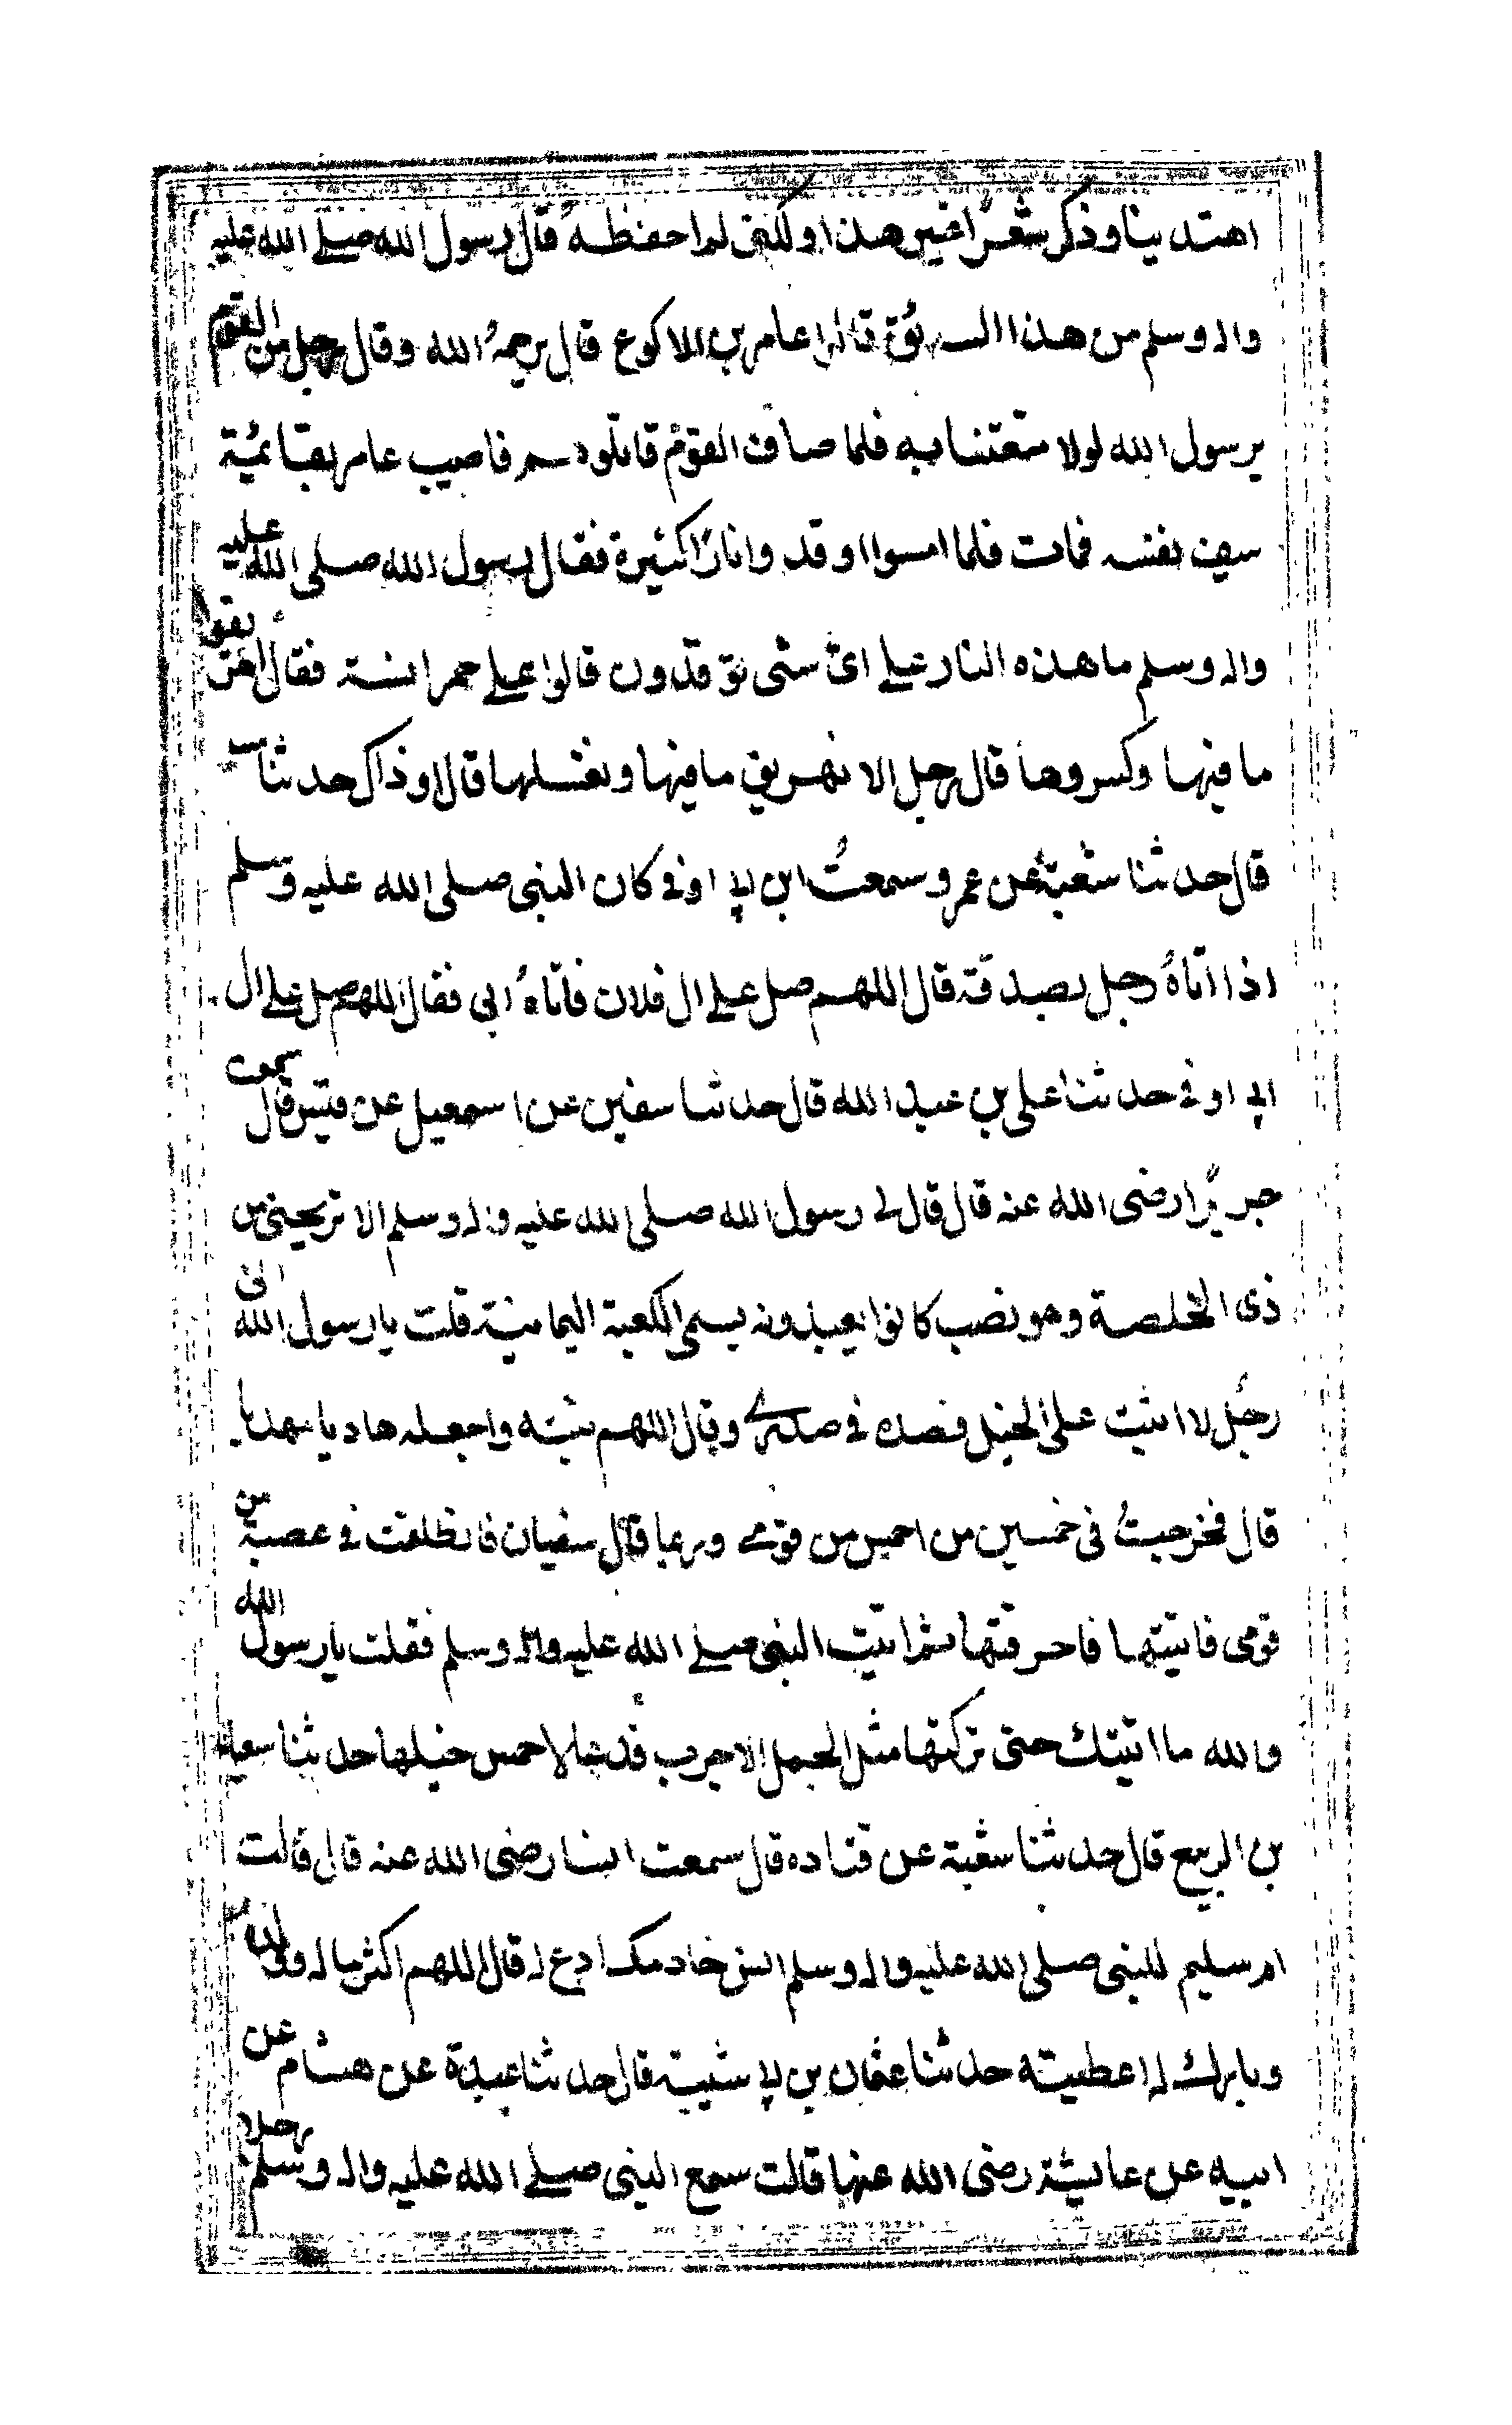 اهتدينا وذكر شعرًا غير هذا ولكنى لم احفظه قال رسول الله صلے الله عليه
واله وسلم من هذا السائق قالوا عامر بن الاكوع قال يرحمهُ الله وقال رجل من القوم
يرسول الله لولا متعتنا به فلما صاف القومُ قاتلوهم فاصيب عامر بقائمة
سيف نفسه فمات فلما امسوا اوقدوا نارًا كثيرة فقال رسول الله صلى الله عليه
واله وسلم ما هذه النار علے اىّ شى توقدون قالوا علے حمر انسة فقال اهريقوا
ما فيها وكسروها قال رجل الا نهريق ما فيها ونغسلها قال اوذاك حدثنا مسلم
قال حدثنا شعبة عن عمرو سمعتُ ابن ابے اوفى كان النبى صلى الله عليه وسلم
اذا اتاهُ رجل بصدقة قال اللهم صل علے ال فلان فاتاهُ ابى فقال اللهم صل علے ال
ابى اوفى حدثنا على بن عبد الله قال حدثنا سفين عن اسمعيل عن قيس قال سمعت
جريرًا رضى الله عنه قال قال لى رسول الله صلى الله عليه واله وسلم الا تريحنى من
ذى الخلصة وهو نصب كانوا يعبدونه يسمى الكعبة اليمامية قلت يا رسول الله انى
رجل لا اثبت على الخيل فصك فى صدرے وقال اللهم ثبته واجعله هاديا مهديا
قال فخرجتُ فى خمسين من احمس من قومے وربما قال سفيان فانطلقت فى عصبة من
قومى فاتيتها فاحرقتها ثم اتيت النبى صلے الله عليه واله وسلم فقلت يا رسول الله
والله ما اتيتك حتى تركتها مثل الجمل الاجرب فدعا لاحمس خيلها حدثنا سعيد
بن الربيع قال حدثنا شعبة عن قتاده قال سمعت انسا رضى الله عنه قال قالت
ام سليم للنبى صلى الله عليه واله وسلم انس خادمك ادع له قال اللهم اكثر ماله وولده
وبارك له اعطيته حدثنا عثمان بن ابے شيبة قال حدثنا عبدة عن هشام عن
ابيه عن عايشة رضى الله عنها قالت سمع النبى صلے الله عليه واله وسلم رجلا